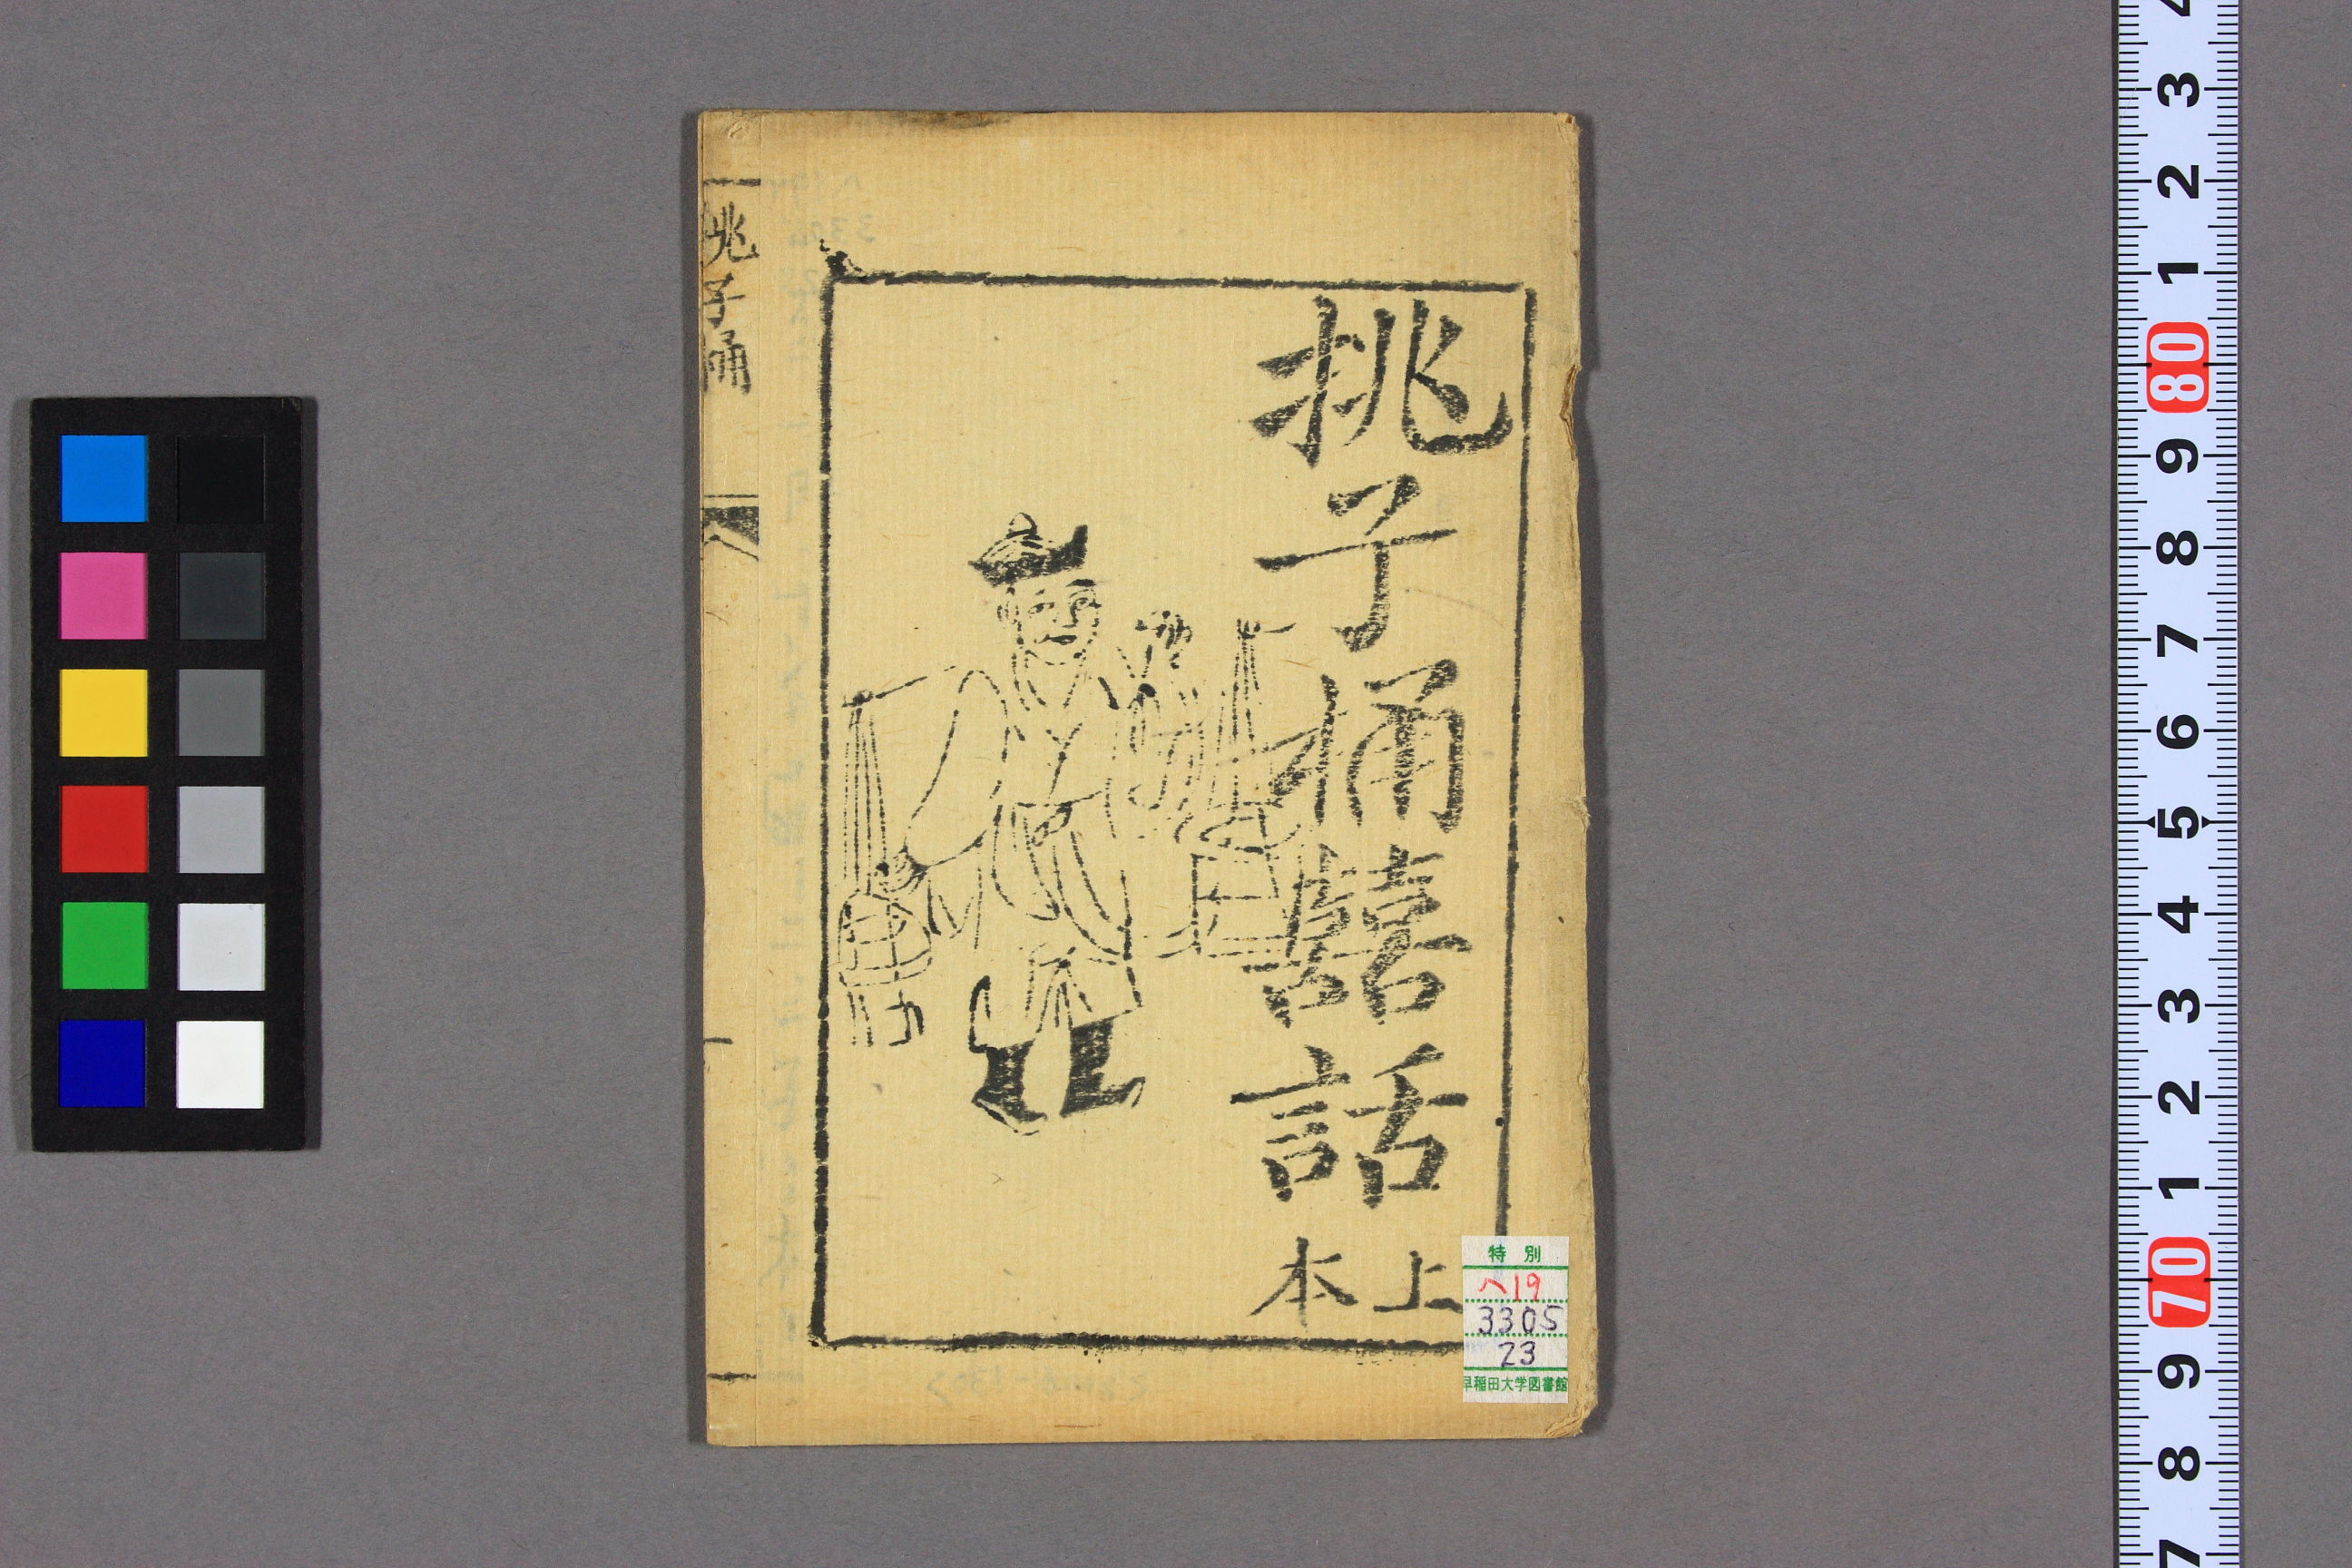 挑子桶囍話
上本
挑子桶
特別
ヘ19
3305
23
早稲田大学図書館
4
3
2
1
80
9
8
7
6
5
4
3
2
1
70
9
8
7